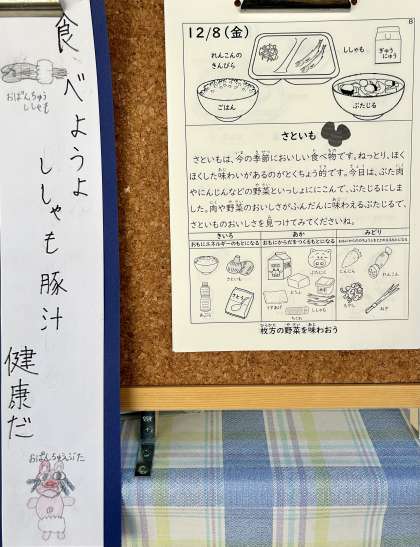 食べようよ
ししゃも豚汁
健康だ
おぱんちゅう
ししゃも
おぱんちゅうぶた
B
12/8(金)
れんこんの
きんぴら
ししゃも
ぎゅう
にゅう
ごはん
ぶたじる
さといも
さといもは、今の季節においしい食べ物です。ねっとり、ほく
ほくした味わいがあるのがとくちょう的です。今日は、ぶた肉
やにんじんなどの野菜といっしょににこんで、ぶたじるにしま
した。肉や野菜のおいしさがふんだんに味わえるぶたじるで、
さといものおいしさを見つけてみてくださいね。
きいろ
あか
みどり
おもにエネルギーのもとになる
おもにからだをつくるもとになる
さといも
あぶら
さとう
ぶたにく
とうふ
ししゃも
ちくわ
にんじん
れんこん
ねぎ
枚方の野菜を味わおう